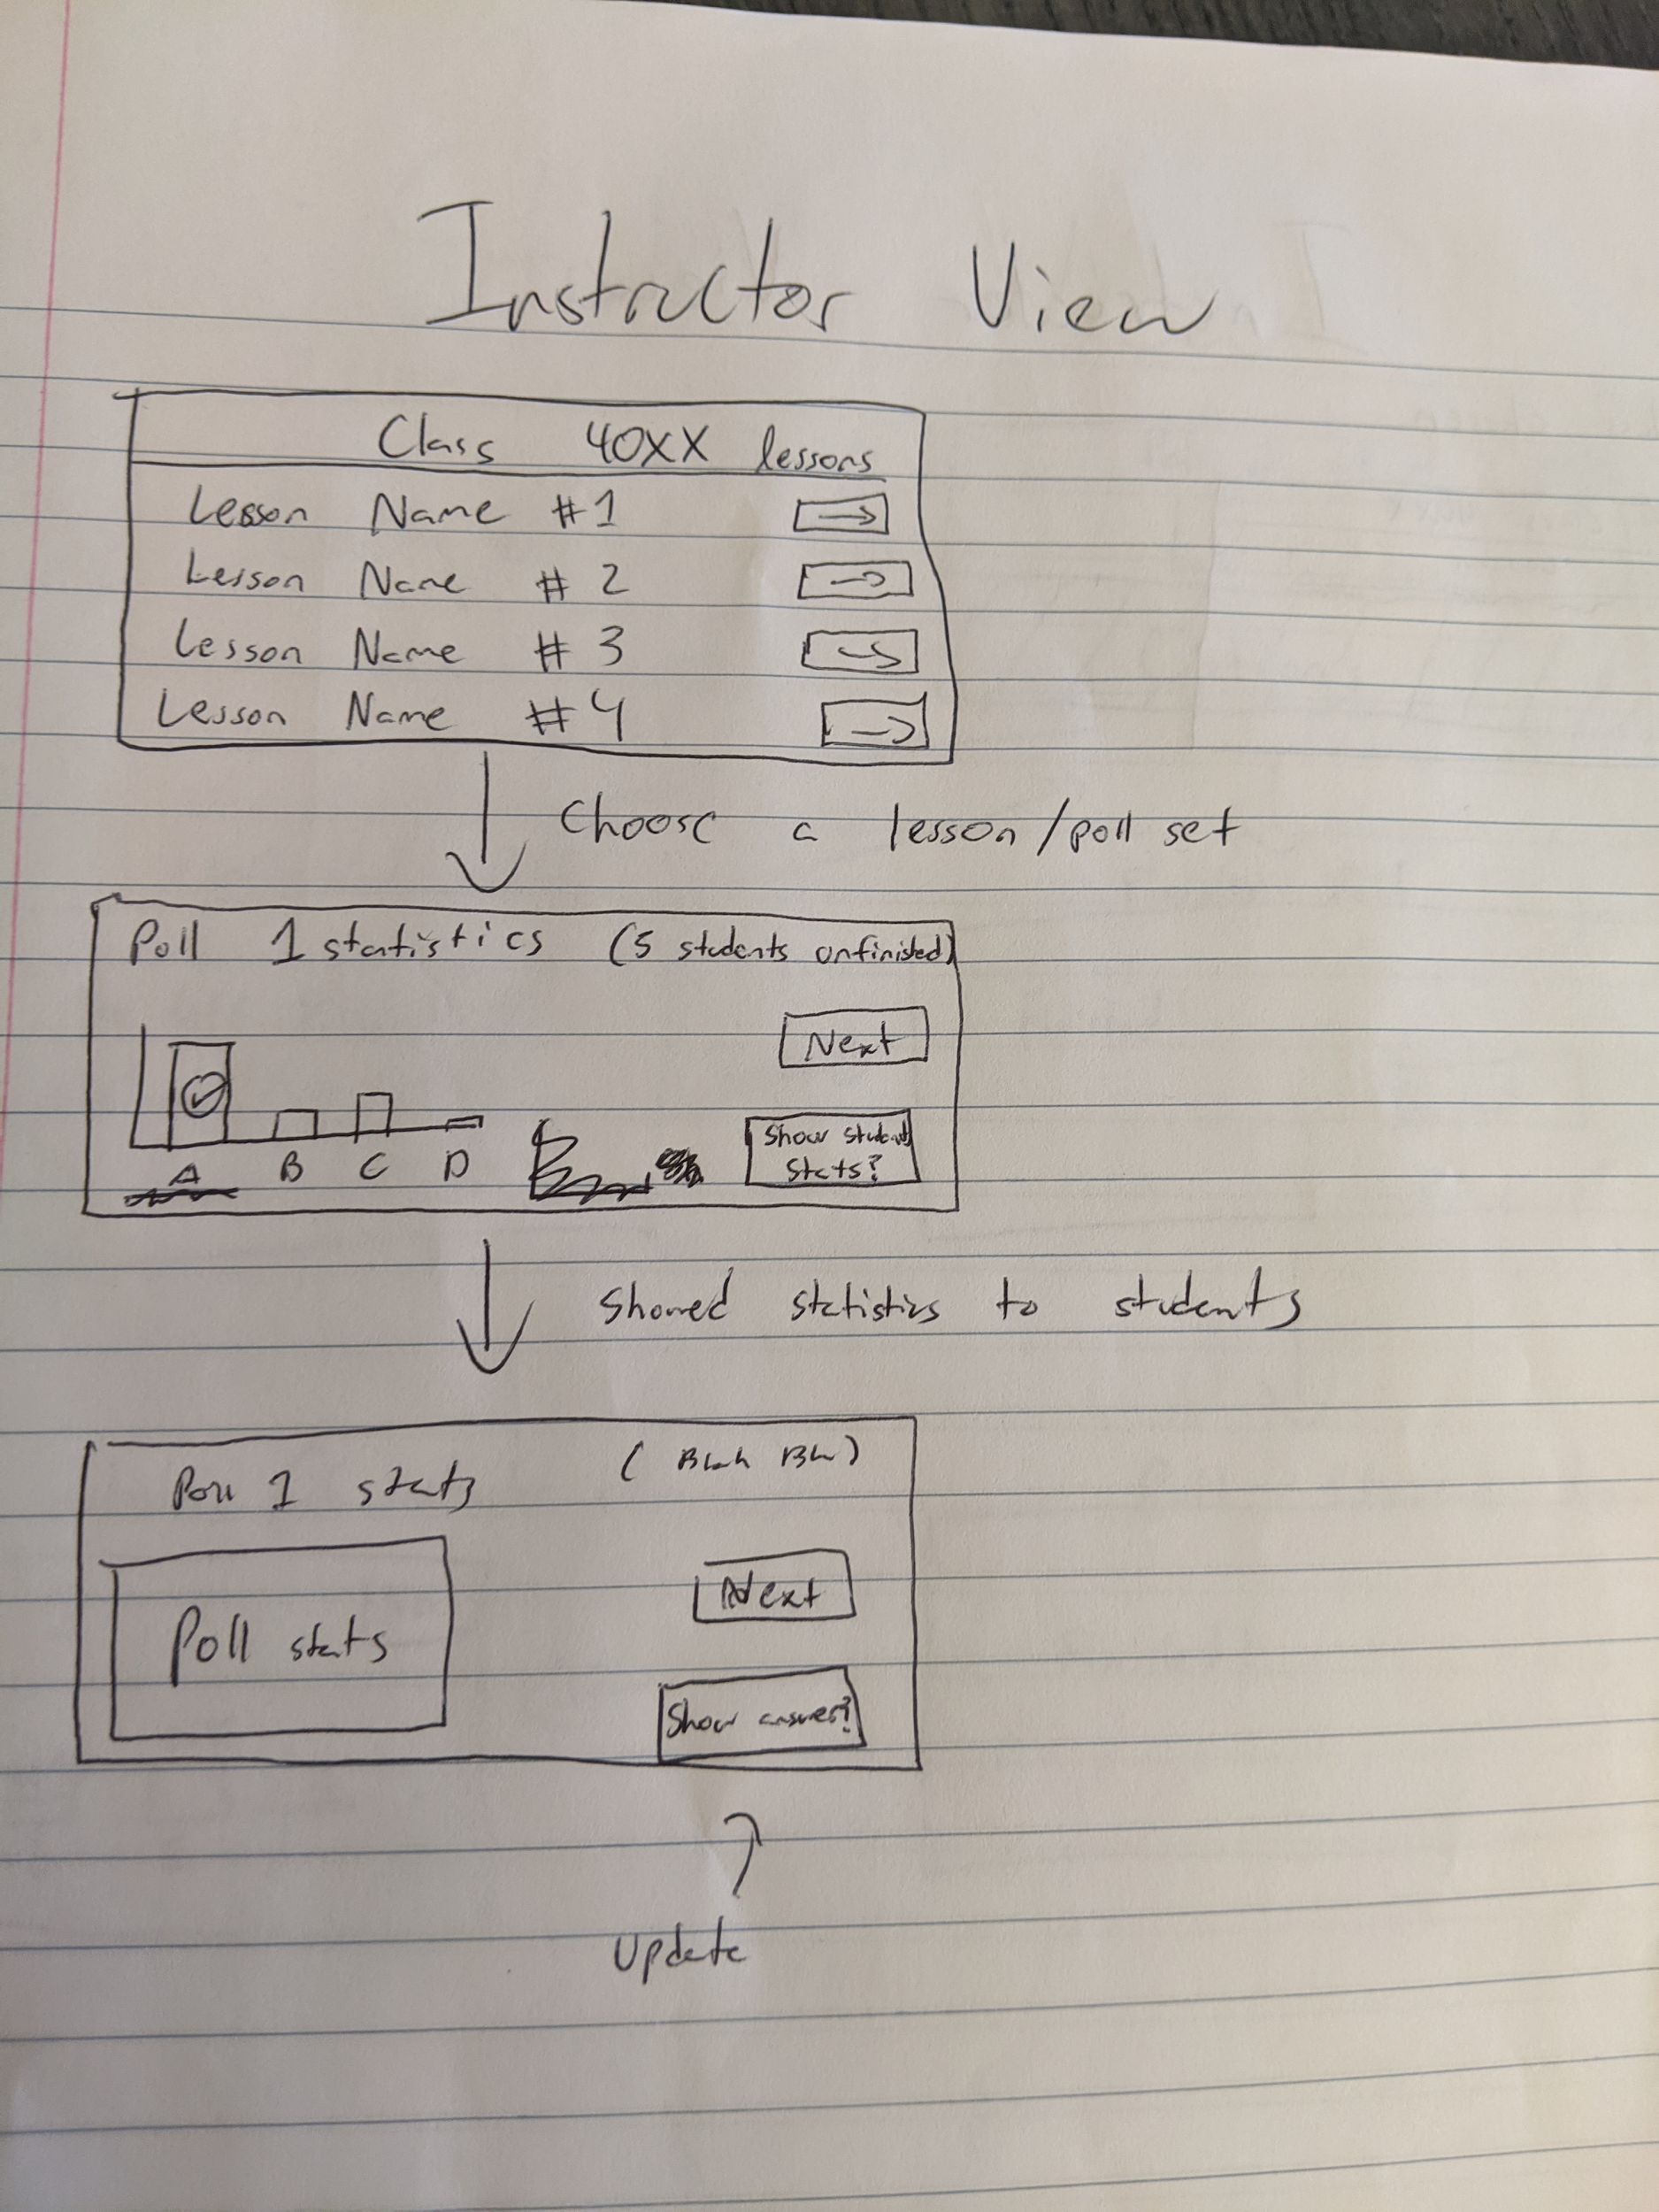 Instructor View
Class 40XX lessons
Lesson Name #1
Lesson Name # 2
Lesson Name # 3
Lesson Name #4
Choose a lesson/poll set
Poll 1 statistics (5 students unfinished)
Next
A B C D
Show student
stats?
Showed statistics to students
Poll 1 stats (Blah Blah)
Next
Poll stats
Show answer?
Update